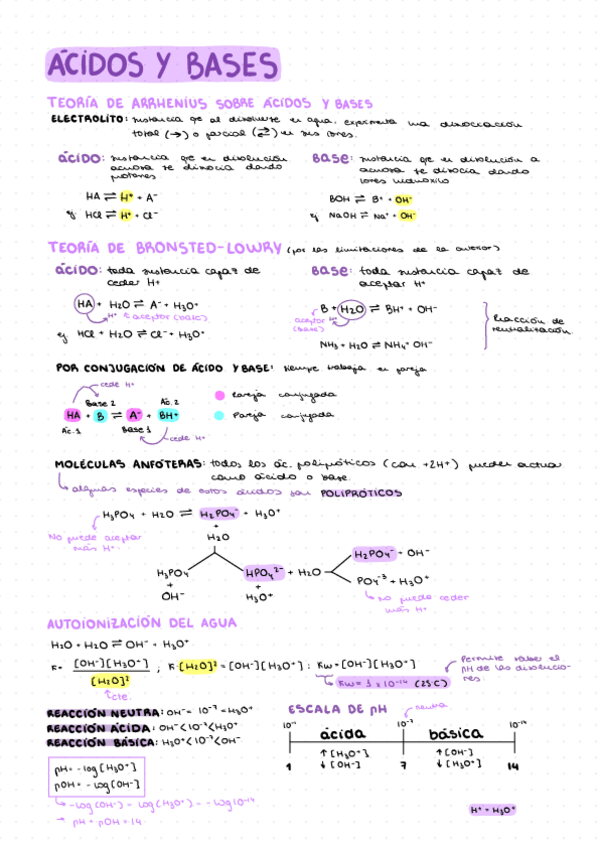 ÁCIDOS Y BASES
TEORÍA DE ARRHENIUS SOBRE ÁCIDOS Y BASES
ELECTROLITO: sustancia qe al disolverse en agua, experimenta una disociación
total (→) o parcial (⇄) en sus iones.
ÁCIDO: sustancia qe en disolución
acuosa se disocia dando
protones
HA ⇌ H⁺ + A⁻
ej HCl ⇌ H⁺ + Cl⁻
BASE: sustancia qe en disolución a
acuosa se disocia dando
iones hidroxilo
BOH ⇌ B⁺ + OH⁻
ej NaOH ⇌ Na⁺ + OH⁻
TEORÍA DE BRONSTED-LOWRY (por las limitaciones de la anterior)
ÁCIDO: toda sustancia capaz de
ceder H⁺
HA + H₂O ⇌ A⁻ + H₃O⁺
H⁺ aceptor (base)
ej HCl + H₂O ⇌ Cl⁻ + H₃O⁺
BASE: toda sustancia capaz de
aceptar H⁺
B + H₂O ⇌ BH⁺ + OH⁻
aceptor H⁺
(base)
NH₃ + H₂O ⇌ NH₄⁺ OH⁻
Reacción de
neutralización
POR CONJUGACIÓN DE ÁCIDO Y BASE: siempre trabaja en pareja
cede H⁺
Base 2 Ác. 2
HA + B ⇌ A⁻ + BH⁺
Ác. 1 Base 1
cede H⁺
Pareja conjugada
Pareja conjugada
MOLÉCULAS ANFÓTERAS: todos los ác. polipróticos (con +2H⁺) pueden actuar
como ácido o base.
algunas especies de estos ácidos son POLIPRÓTICOS
H₃PO₄ + H₂O ⇌ H₂PO₄⁻ + H₃O⁺
No puede aceptar
más H⁺.
+
H₂O
H₃PO₄
+
OH⁻
HPO₄²⁻ + H₂O
+
H₃O⁺
H₂PO₄⁻ + OH⁻
PO₄⁻³ + H₃O⁺
no puede ceder
más H⁺
AUTOIONIZACIÓN DEL AGUA
H₂O + H₂O ⇌ OH⁻ + H₃O⁺
K = [OH⁻][H₃O⁺] / [H₂O]² ; K·[H₂O]² = [OH⁻][H₃O⁺] : Kw = [OH⁻][H₃O⁺]
cte.
Kw = 1 x 10⁻¹⁴ (25ºC)
Permite saber el
pH de las disolucio-
nes.
REACCIÓN NEUTRA: OH⁻ = 10⁻⁷ = H₃O⁺
REACCIÓN ÁCIDA: OH⁻ < 10⁻⁷ < H₃O⁺
REACCIÓN BÁSICA: H₃O⁺ < 10⁻⁷ < OH⁻
pH = -log[H₃O⁺]
pOH = -log[OH⁻]
-log(OH⁻) - log(H₃O⁺) = -log10⁻¹⁴
→ pH + pOH = 14
ESCALA DE pH
neutra
10⁻¹ 10⁻⁷ 10⁻¹⁴
ácida básica
↑[H₃O⁺] ↑[OH⁻]
↓[OH⁻] ↓[H₃O⁺]
1 7 14
H⁺ = H₃O⁺